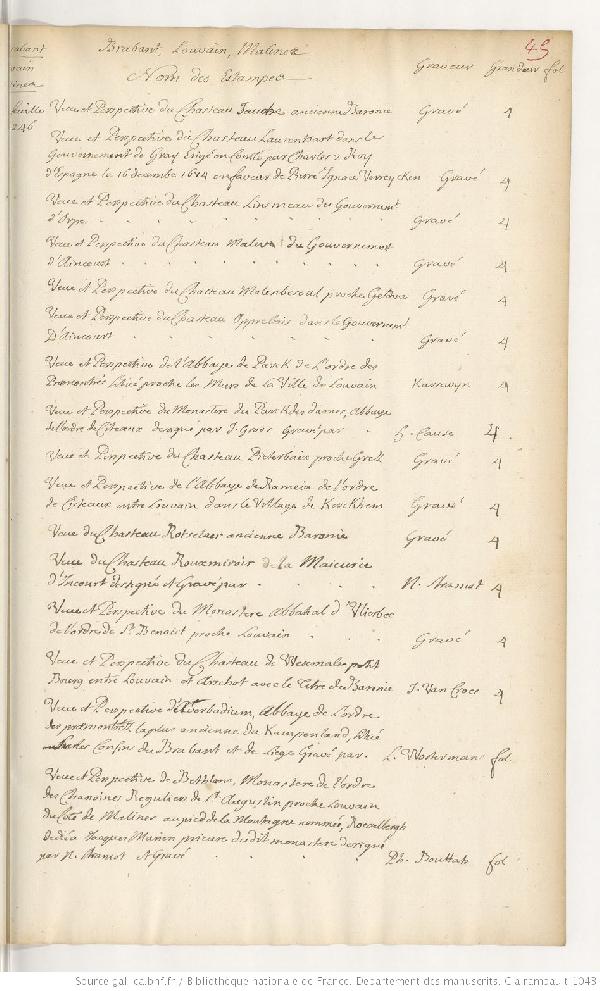 Brabant, Louvain, Malines
45
Nom des Estampes
Graveur Grandeur fol
Veue et Perspective du Chasteau Jauche ancienne Baronie Gravé 4
Veue et Perspective du Chasteau dans le
Gouvernement de Gray Erigé en Comté par Charles 2 d'Roy
d'Espagne le 16 decembre 1674 en faveur de Pierre Ignace Verreycken Gravé 4
Veue et Perspective du Chasteau Linsmeau du Gouvernemt
Gravé 4
Veue et Perspective du Chasteau du Gouvernement
d'Aincourt Gravé 4
Veue et Perspective du Chasteau proche Gravé 4
Veue et Perspective du Chasteau Opprebais dans le Gouvernemt
D'Aincourt Gravé 4
Veue et Perspective de l'Abbaye de Parck de L'ordre des
Premontrés située proche les Murs de la Ville de Louvain Harrewyn 4
Veue et Perspective du Monastere du Parck des dames, Abbaye
de l'ordre de Citeaux designé par J. Gravé par L. Causé 4
Veue et Perspective du Chasteau Pieterbais proche Grez Gravé 4
Veue et Perspective de l'Abbaye de Rameia de l'ordre
de Citeaux entre Louvain dans le Village de Kerckhem Gravé 4
Veue du Chasteau Rotselaer ancienne Baronie Gravé 4
Veue du Chasteau Rouxmiroir de la Maieurie
d'Incourt designé et Gravé par N. Aramot 4
Veue et Perspective du Monastere Abbatial d'Vlierbec
de l'ordre de St Benoist proche Louvain Gravé 4
Veue et Perspective du Chasteau de Wesemale petit
Bourg entre Louvain et Arschot avec le titre de Baronie J. Van Croes 4
Veue et Perspective d'Averbadium, Abbaye de l'ordre
des premontrés, la plus ancienne du Kampenland, située
les Confins du Brabant et de Liege Gravé par L. Vosterman fol.
Veue et Perspective de Bethleem, Monastere de l'ordre
des Chanoines Reguliers de St Augustin proche Louvain
du Coté de Malines au pied de la Montagne nommée, Roeselbergh
Dedié a Jacques Marien prieur dudit monastere designé
par N. Aramot et Gravé Ph. Bouttats fol
Source gallica.bnf.fr / Bibliothèque nationale de France. Département des manuscrits. Clairambault 1043